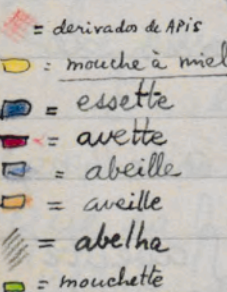 = derivados de APis
: mouche à miel
= essette
= avette
= abeille
= aveille
= abelha
= mouchette